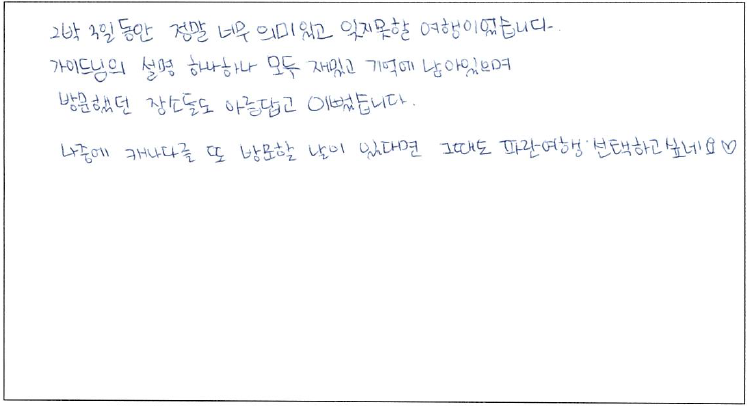 2박 3일동안 정말 너무 의미있고 잊지못할 여행이었습니다.
가이드님의 설명 하나하나 모두 재밌고 기억에 남아있으며
방문했던 장소들도 아름답고 이뻤습니다.
나중에 캐나다를 또 방문할 날이 있다면 그때도 파란여행 선택하고싶네요♡